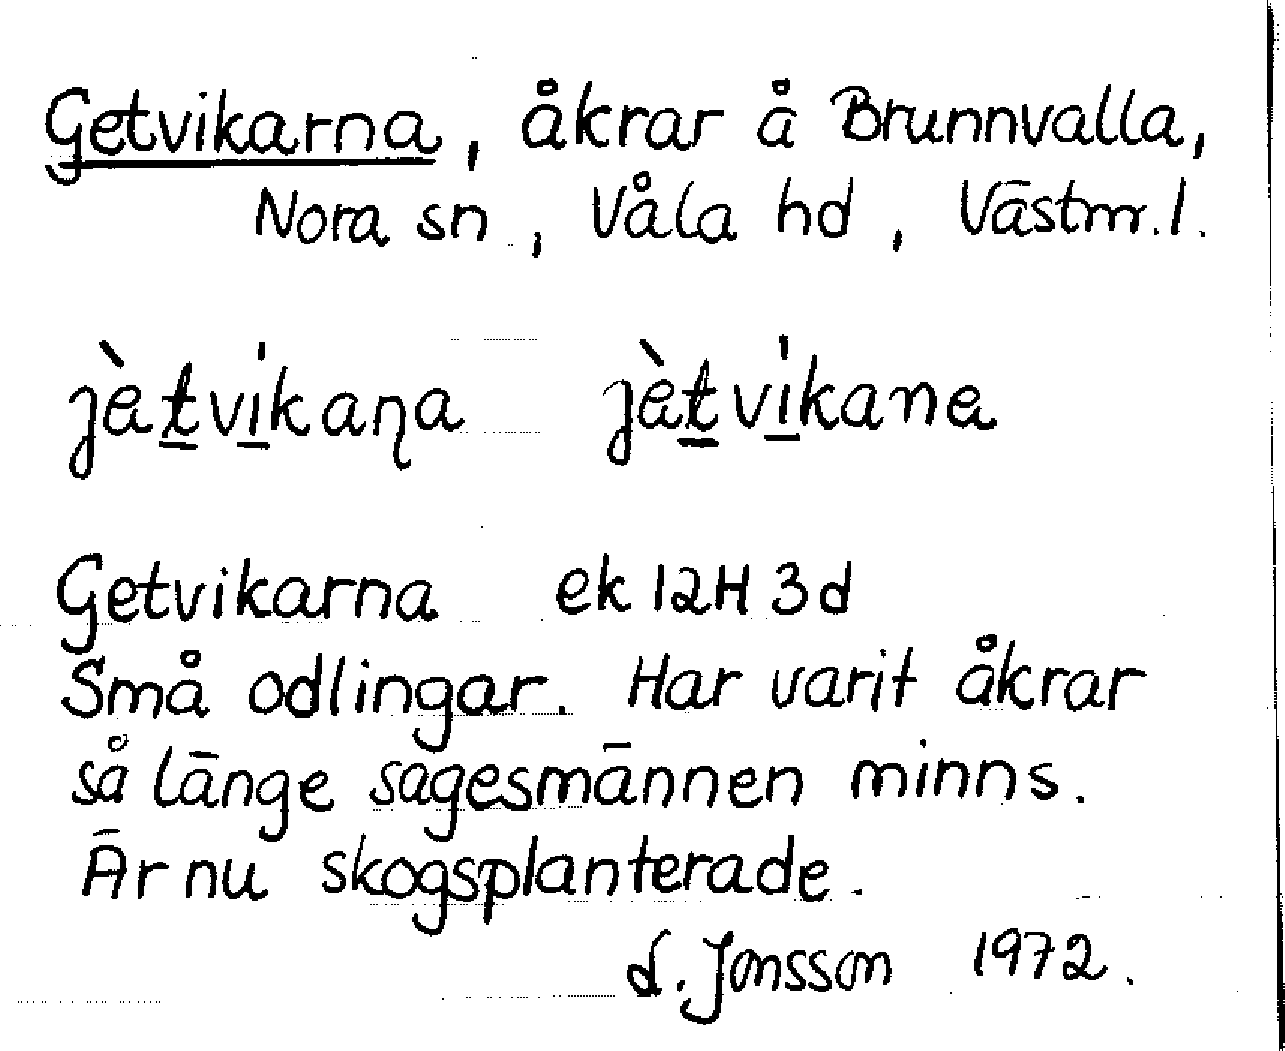 Getvikarna, åkrar å Brunnvalla,
Nora sn, Våla hd, Västm. l.
jètvikaɳa jètvikane
Getvikarna ek 12H 3d
Små odlingar. Har varit åkrar
så länge sagesmännen minns.
Är nu skogsplanterade.
Jonsson 1972.